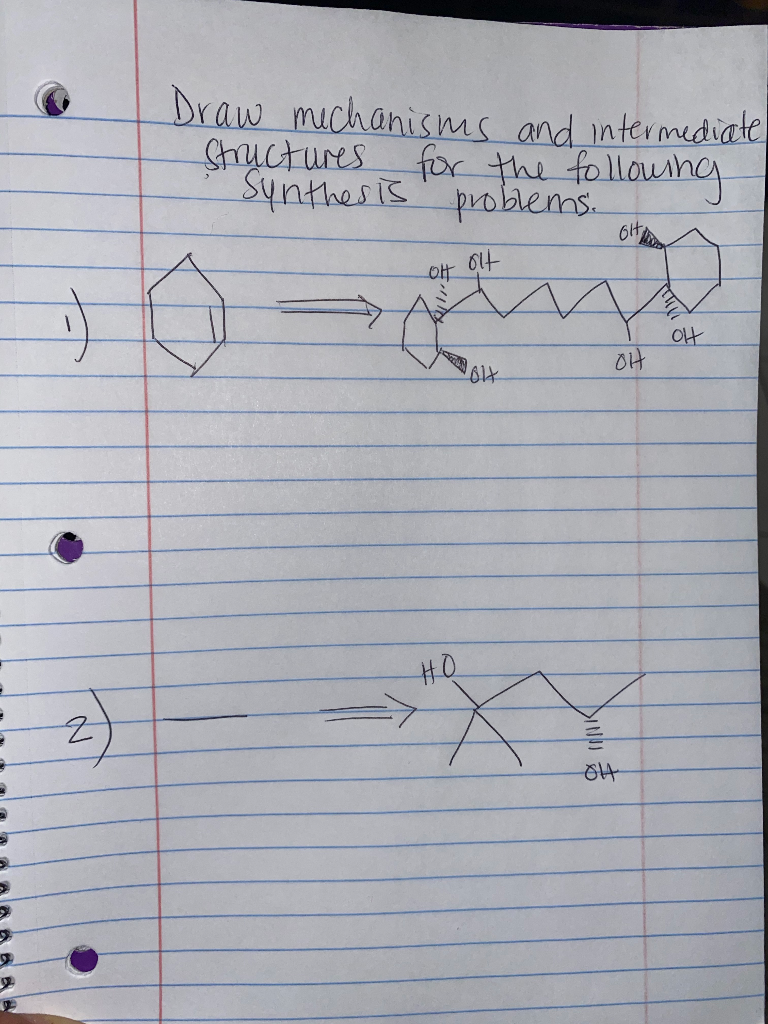 Draw mechanisms and intermediate
structures for the following
synthesis problems.
1)
OH
OH
OH
OH
OH
OH
2)
HO
OH